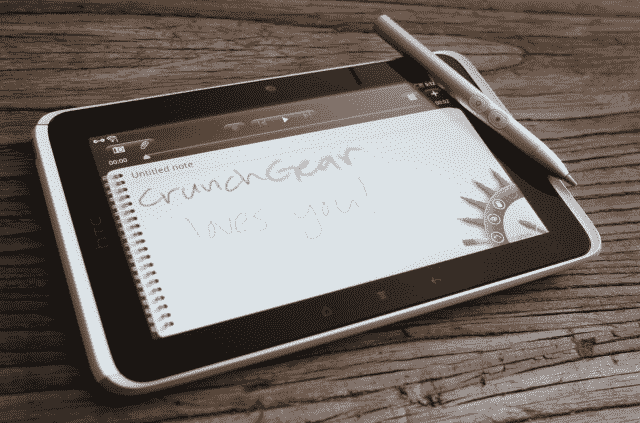 hTC
00:00
Untitled note
crunchGear
loves you!